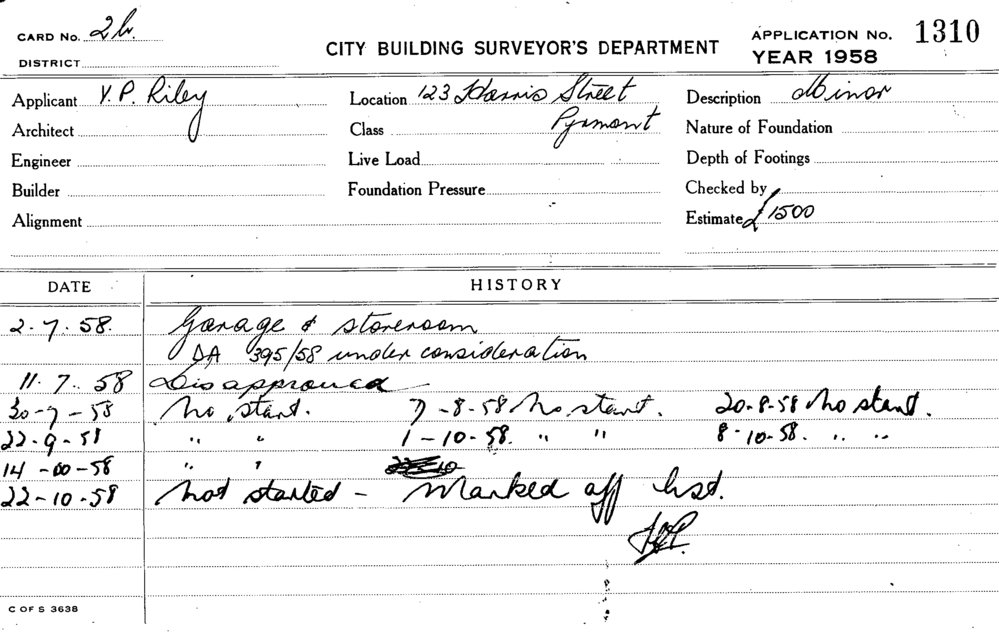 CARD No. 2b. CITY BUILDING SURVEYOR'S DEPARTMENT APPLICATION No. 1310
DISTRICT YEAR 1958
Applicant V. P. Riley Location 123 Harris Street Description Minor
Architect Class Pyrmont Nature of Foundation
Engineer Live Load Depth of Footings
Builder Foundation Pressure Checked by
Alignment Estimate £1500
DATE HISTORY
2.7.58. Garage & storeroom
DA 395/58 under consideration
11.7.58 Disapproved
30-7-58 No start. 7-8-58 No start. 20-8-58 No start.
22-9-58 " " 1-10-58. " " 8-10-58. " "
14-00-58 " "
22-10-58 Not started - Marked off list.
C OF S 3638